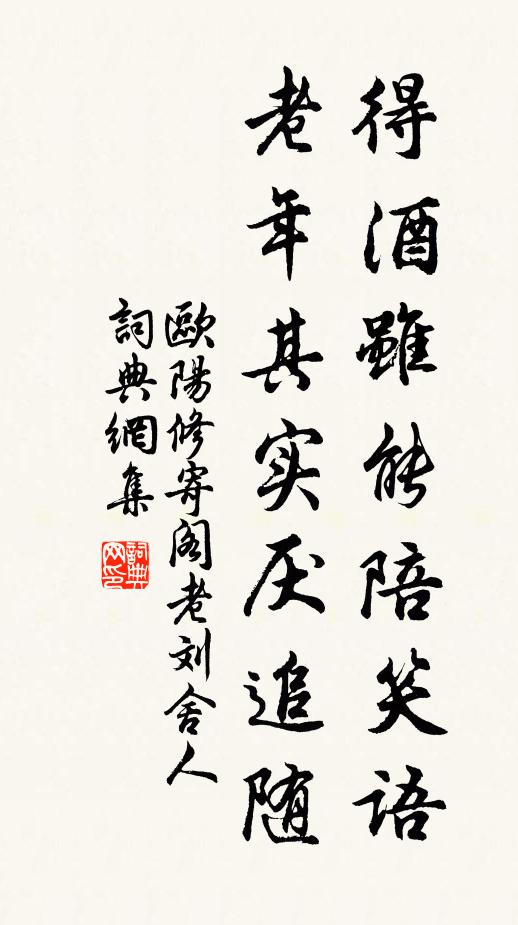 得酒雖能陪笑语
老年其实厌追随
歐陽修寄阁老刘舍人
詞典網集
詞典网印